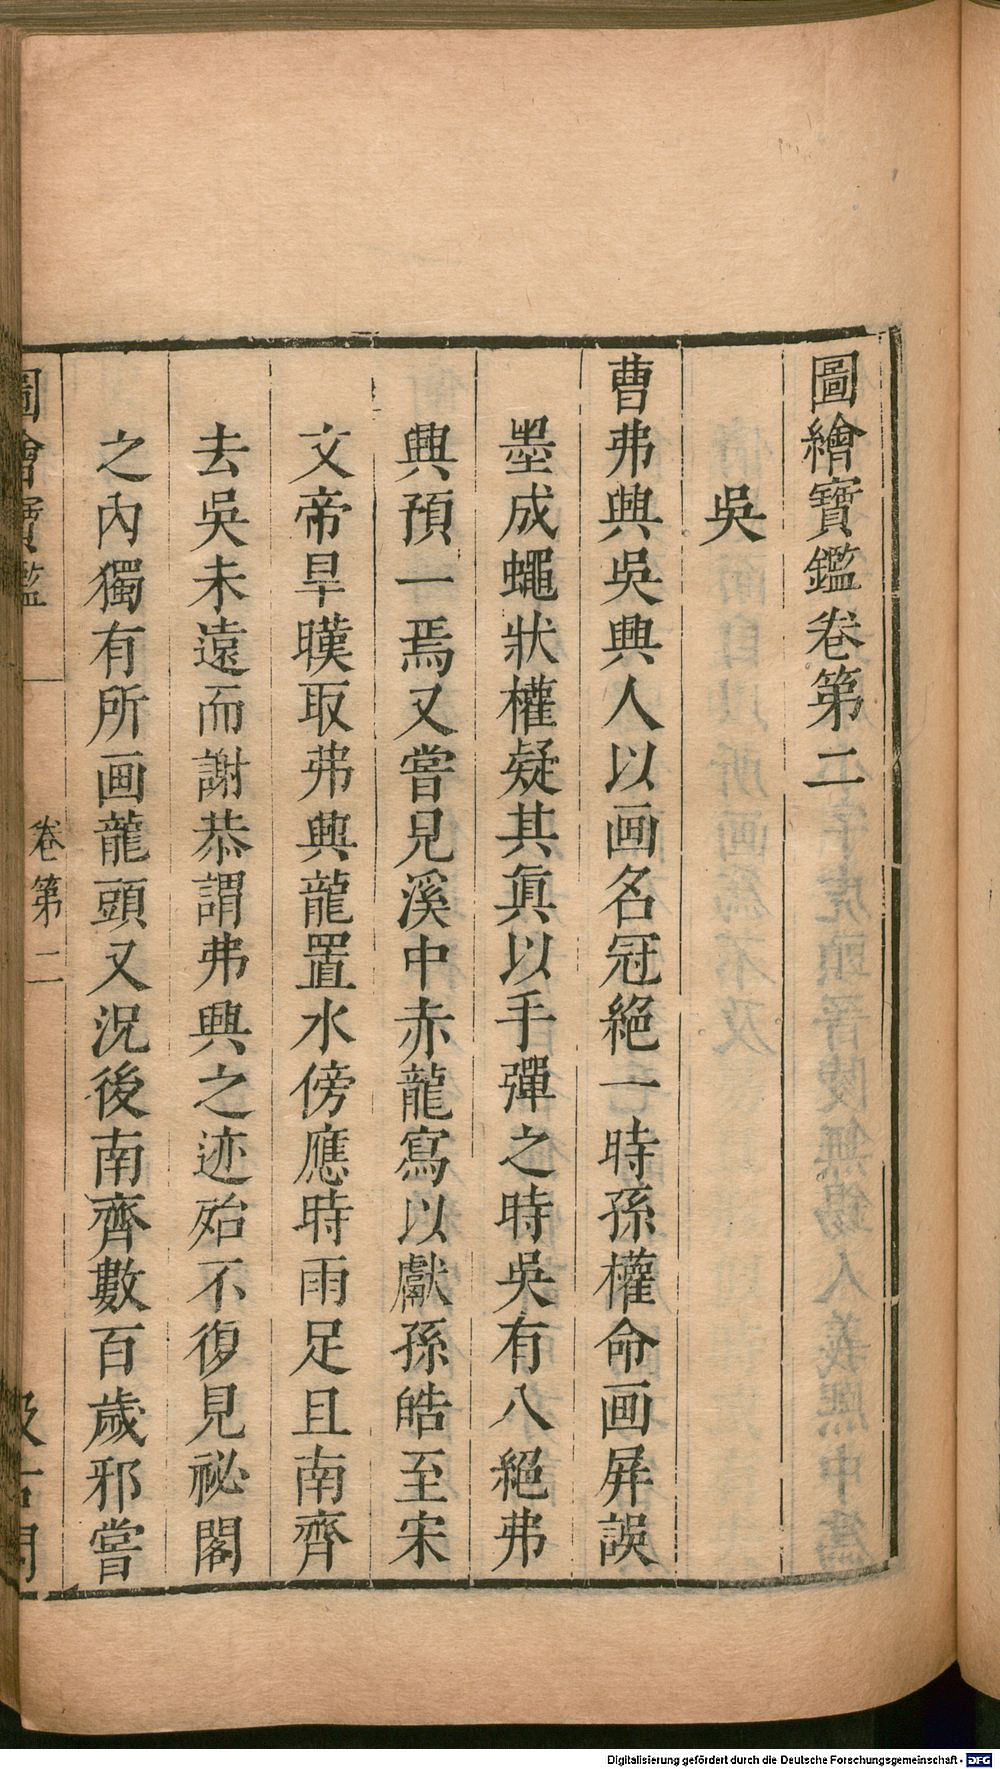 圖繪寶鑑卷第二
吳
曹弗興吳興人以画名冠絕一時孫權命画屏誤
墨成蠅狀權疑其真以手彈之時吳有八絕弗
興預一焉又嘗見溪中赤龍寫以獻孫皓至宋
文帝旱暵取弗興龍置水傍應時雨足且南齊
去吳未遠而謝恭謂弗興之迹殆不復見祕閣
之內獨有所画龍頭又況後南齊數百歲邪嘗
圖繪寶鑑 卷第二 汲古閣
Digitalisierung gefördert durch die Deutsche Forschungsgemeinschaft - DFG